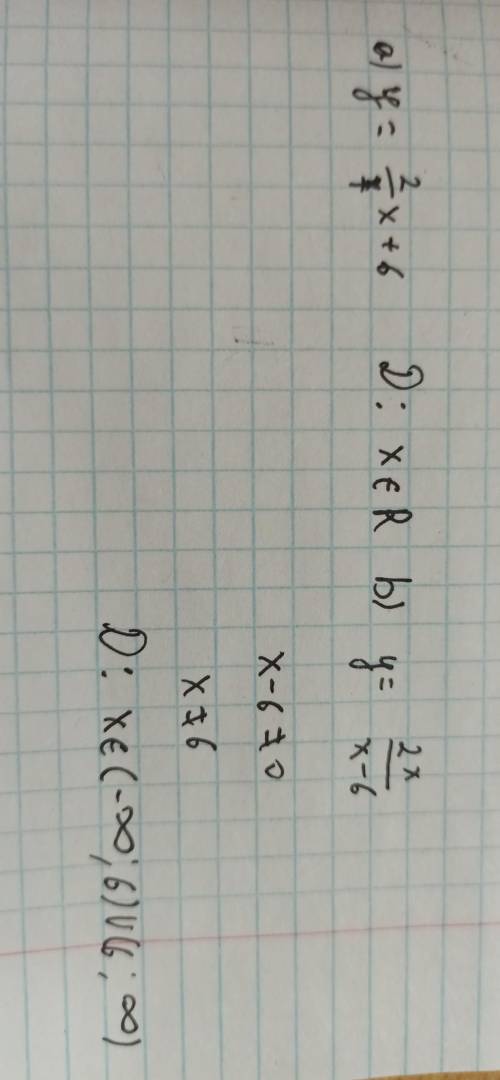 a) y = 2/7 x + 6 D: x ∈ R b) y = 2x/x-6
x-6 ≠ 0
x ≠ 6
D: x ∈ (-∞; 6) ∪ (6; ∞)